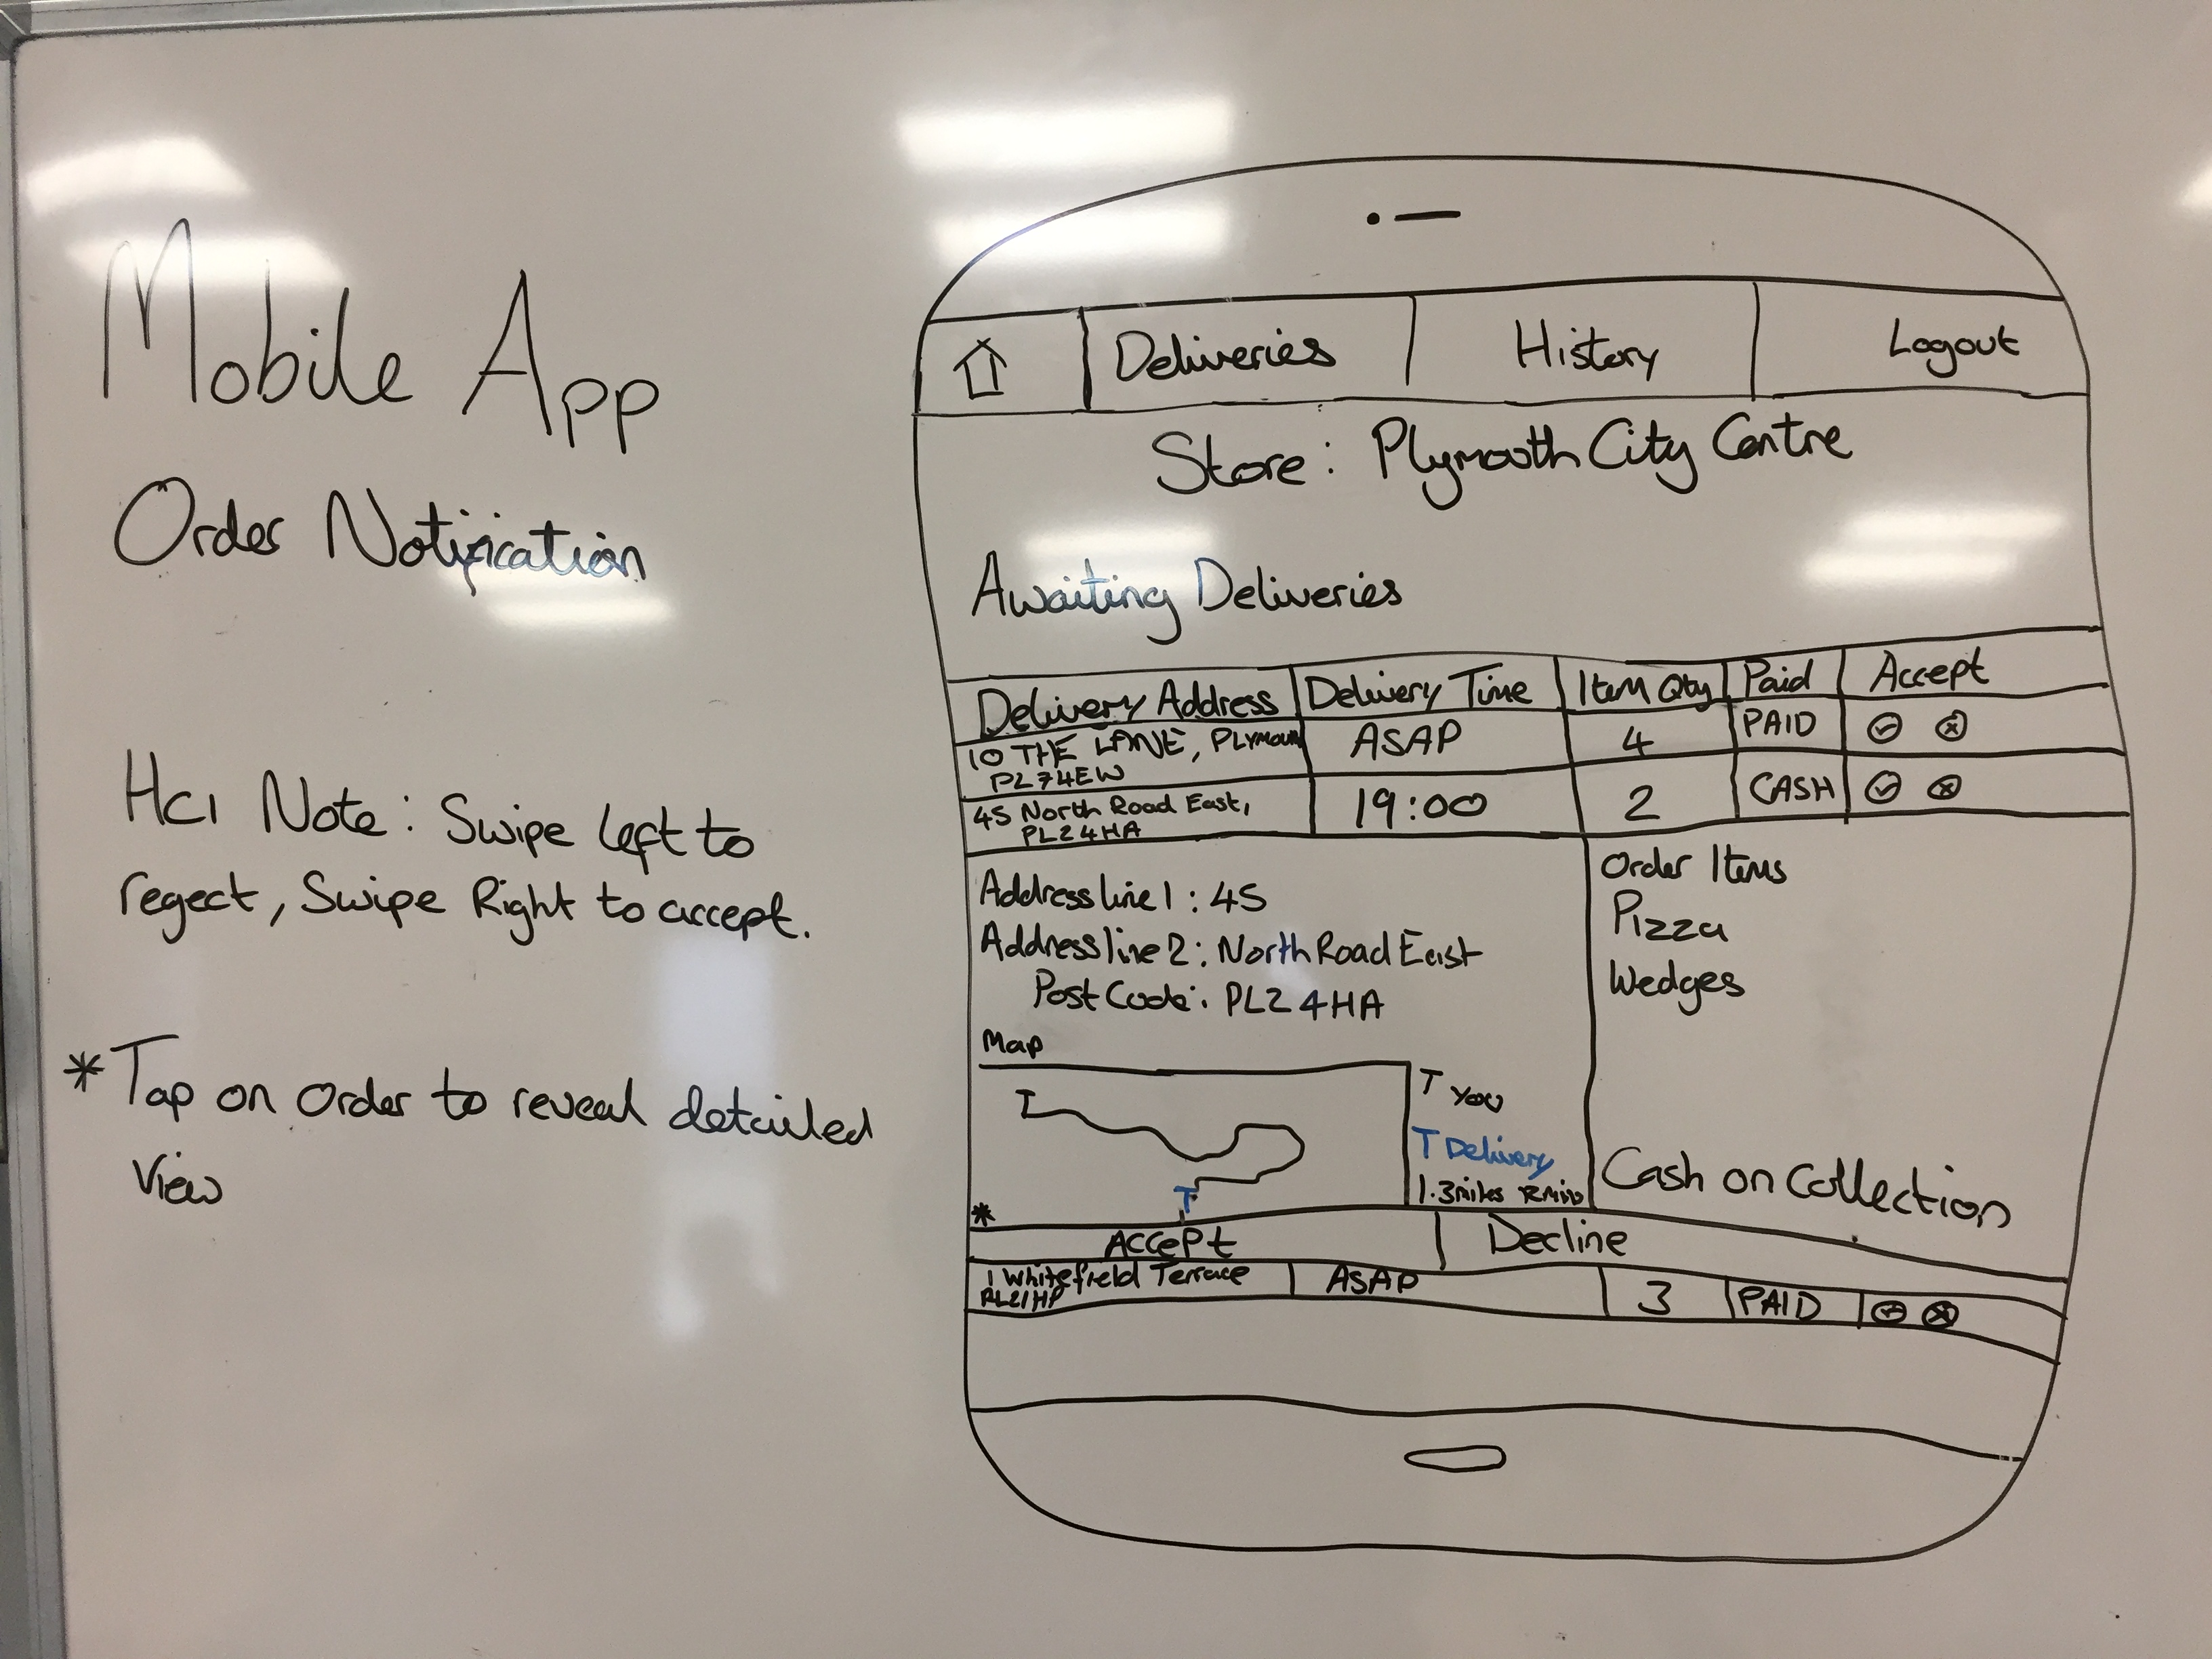 Mobile App
Order Notification
HCI Note: Swipe left to
regect, Swipe Right to accept.
* Tap on order to reveal detailed
View
Deliveries History Logout
Store: Plymouth City Centre
Awaiting Deliveries
Delivery Address Delivery Time Item Qty Paid Accept
10 THE LANE, PLYMOUTH ASAP 4 PAID
PL74EW
45 North Road East, 19:00 2 CASH
PL24HA
Address line 1: 45
Address line 2: North Road East
Post Code: PL2 4HA
Map
T You
T Delivery
1.3miles
*
Order Items
Pizza
Wedges
Cash on Collection
Accept Decline
1 Whitefield Terrace ASAP 3 PAID
PL21HP